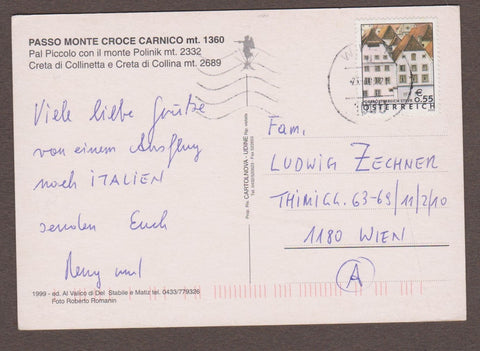 PASSO MONTE CROCE CARNICO mt. 1360
Pal Piccolo con il monte Polinik mt. 2332
Creta di Collinetta e Creta di Collina mt. 2689
Viele liebe Grüße
von einem Ausflug
nach ITALIEN
senden Euch
1999 - ed. Al Valico di Del Stabile e Matiz tel. 0433/779326
Foto Roberto Romanin
CARTOLNOVA - UDINE
€ 0.55
ÖSTERREICH
Fam.
LUDWIG ZECHNER
THIMIGG. 63-69/11/2/10
1180 WIEN
A